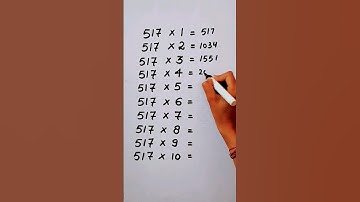 517 × 1 = 517
517 × 2 = 1034
517 × 3 = 1551
517 × 4 = 20
517 × 5 =
517 × 6 =
517 × 7 =
517 × 8 =
517 × 9 =
517 × 10 =